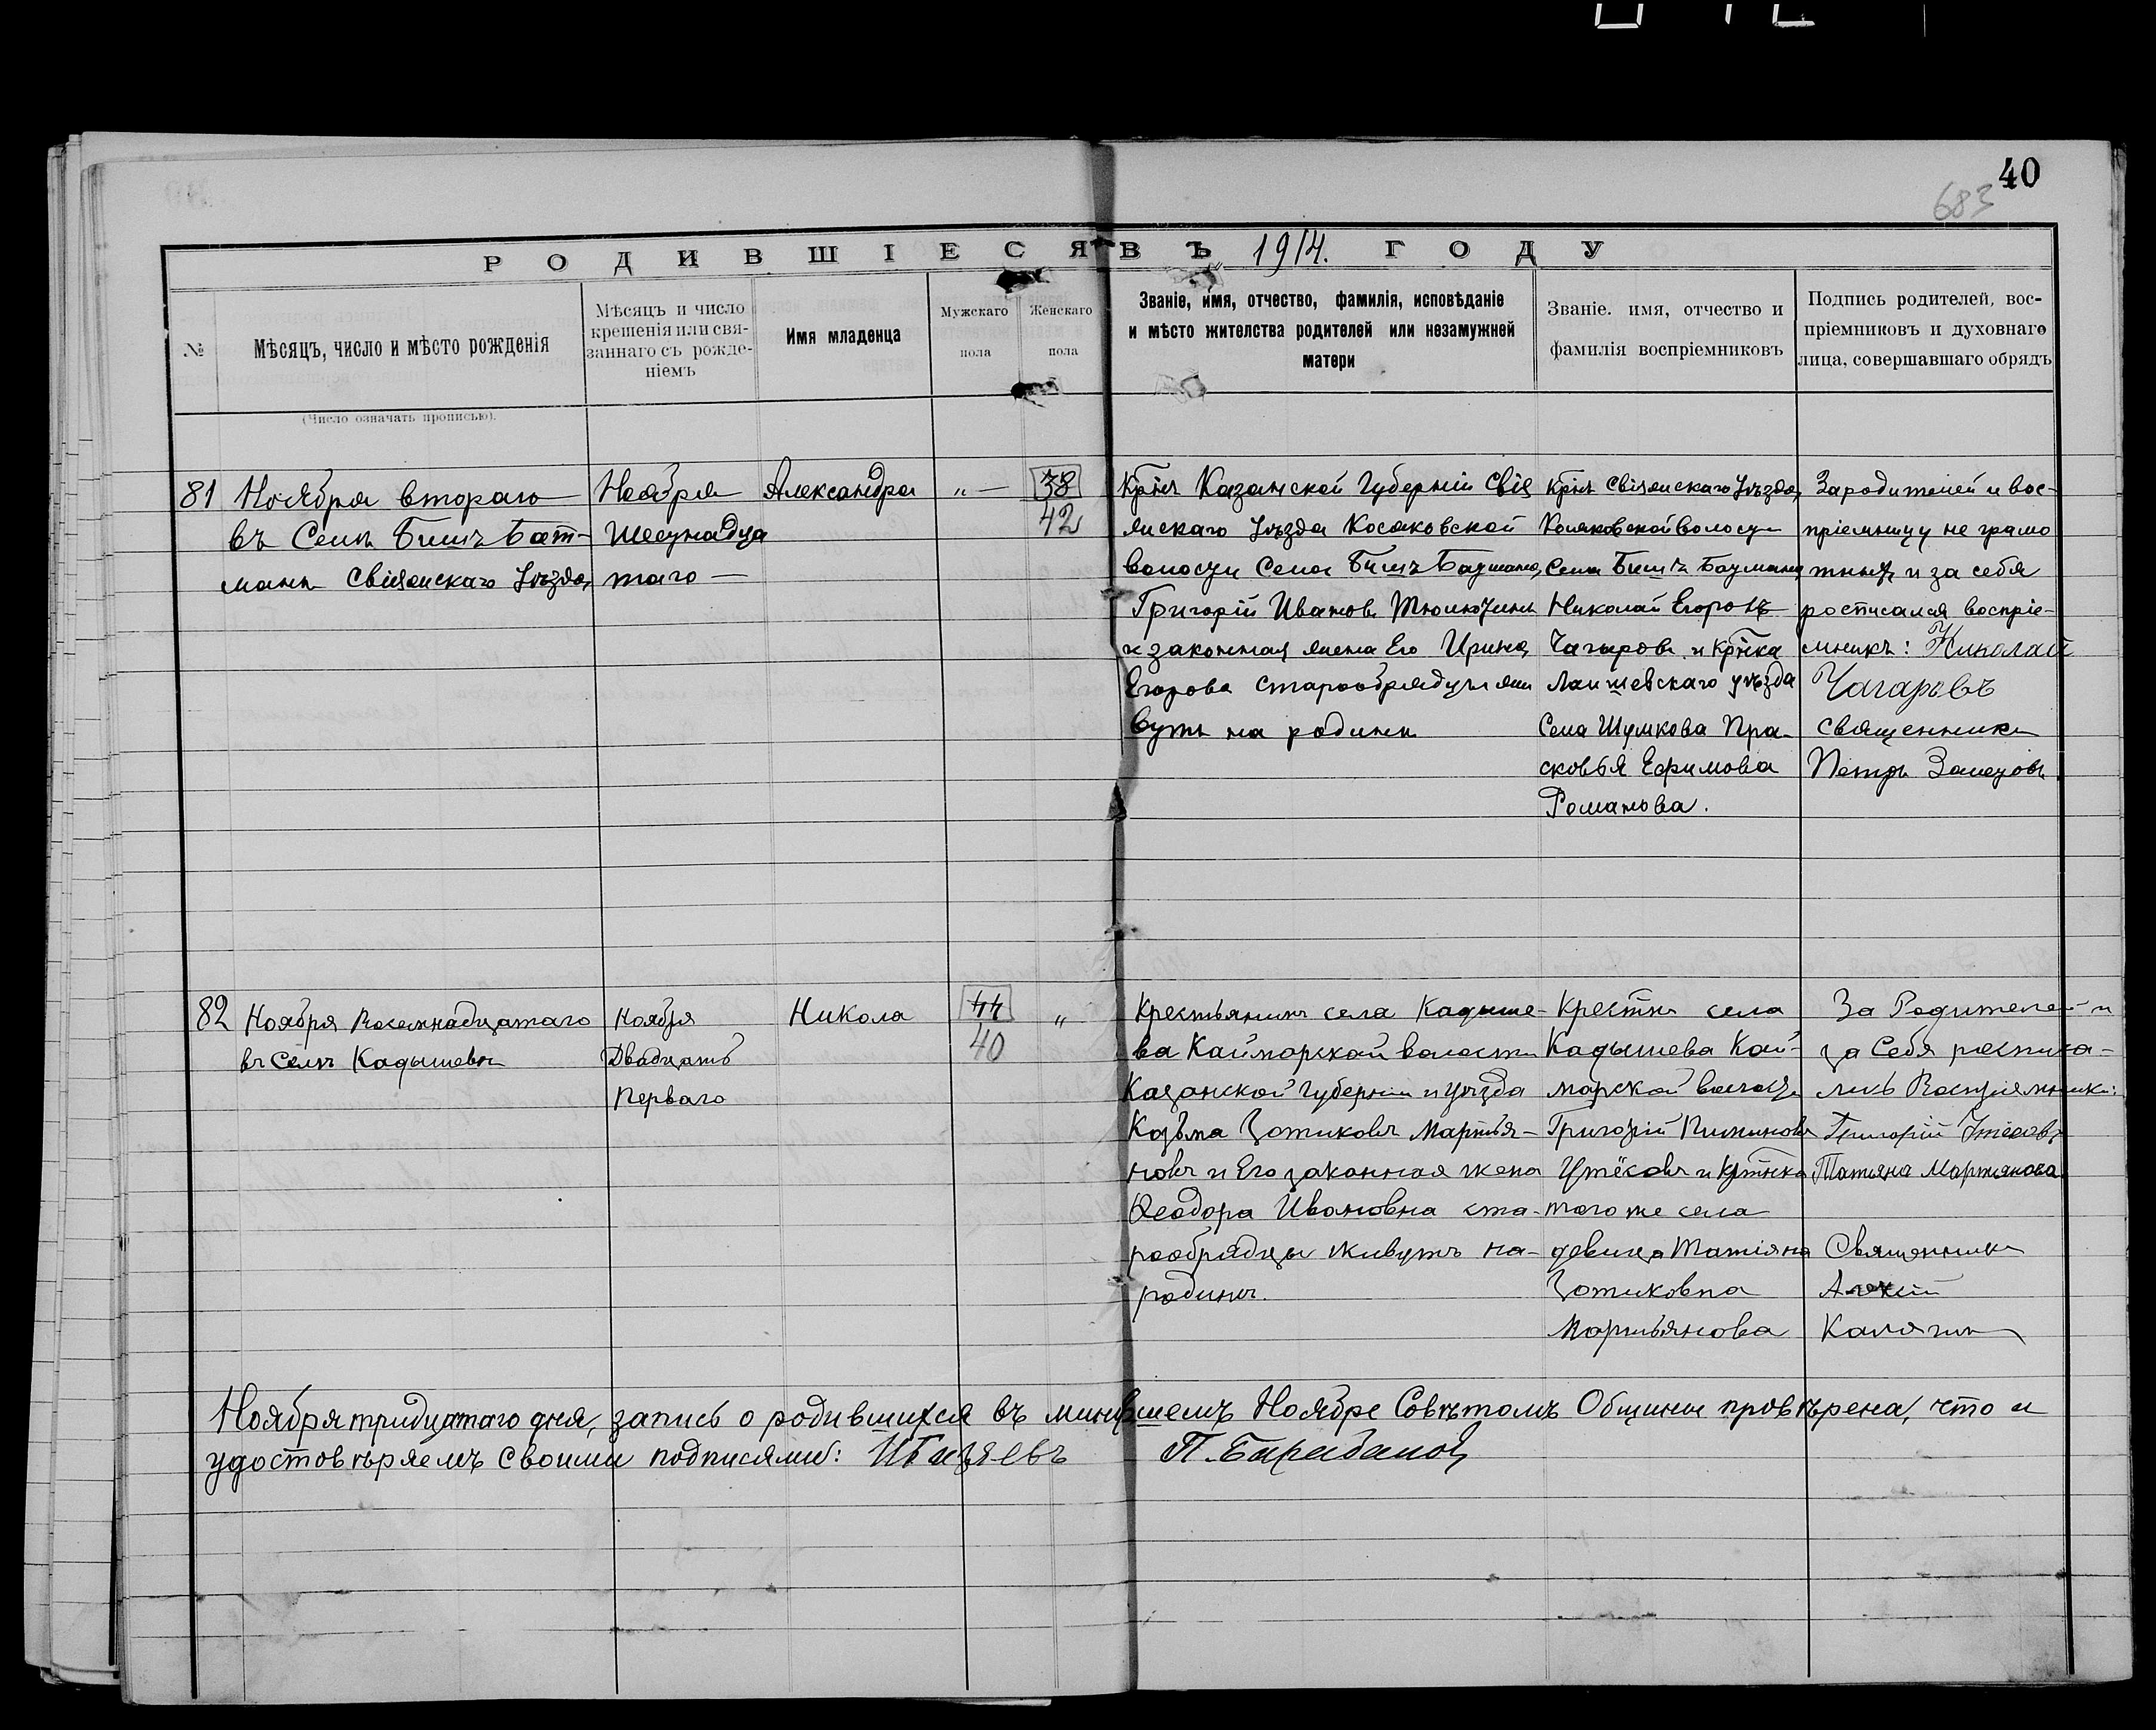 40
683
РОДИВШІЕСЯ ВЪ 1914. ГОДУ
№
Мѣсяцъ, число и мѣсто рожденія
(Число означать прописью).
Мѣсяцъ и число
крещенія или свя-
заннаго съ рожде-
ніемъ
Имя младенца
Мужскаго
пола
Женскаго
пола
Званіе, имя, отчество, фамилія, исповѣданіе
и мѣсто жителства родителей или незамужней
матери
Званіе. имя, отчество и
фамилія воспріемниковъ
Подпись родителей, вос-
пріемниковъ и духовнаго
лица, совершавшаго обрядъ
81
Ноября втораго
въ Селѣ Бишъ Бат-
манъ Свіяжскаго Уѣзда
Ноября
Шеснадца
таго
Александра
„ —
38
42
Крнъ Казанской Губерніи Свія
жскаго Уѣзда Косяковской
волости Села Бишъ Баумана,
Григорій Ивановъ
и законная жена Его Ирина
Егорова старообрядцы жи
вутъ на родинѣ
Крнъ Свіяжскаго Уѣзда,
Косяковской волости
Села Бишъ Баумана
Николай Егоровъ
Чагыровъ и Крнка
Лаишевскаго уѣзда
Села Шумкова Пра-
сковья Ефимова
Романова.
За родителей и вос-
пріемницу не грамо
тныхъ и за себя
росписался воспріе-
мникъ: Николай
Чагаровъ
священникъ
Петръ Залетовъ
82
Ноября Восемнадцатаго
въ Селѣ Кадышевѣ
Ноября
Двадцать
Перваго
Никола
44
40
„
Крестьянинъ села Кадыше-
ва Каймарской волости
Казанской Губерніи и уѣзда
Козьма Зотиковъ Мартья-
новъ и Его законная жена
Ѳеодора Ивановна ста-
рообрядцы живутъ на-
родинѣ.
Крестнъ села
Кадышева Кай-
марской волости
Григорій Пименовъ
Утёсовъ и Крстнка
того же села
девица Татіяна
Зотиковна
Мартьянова
За Родителей и
за Себя росписа-
лись Воспріемники:
Григорій Утесовъ
Татьяна Мартянова
Священникъ
Алексій
Калягин
Ноября тридцатаго дня, запись о родившихся въ минувшемъ Ноябре Совѣтомъ Общины провѣрена, что и
удостовѣряемъ своими подписями: П. Барабанов